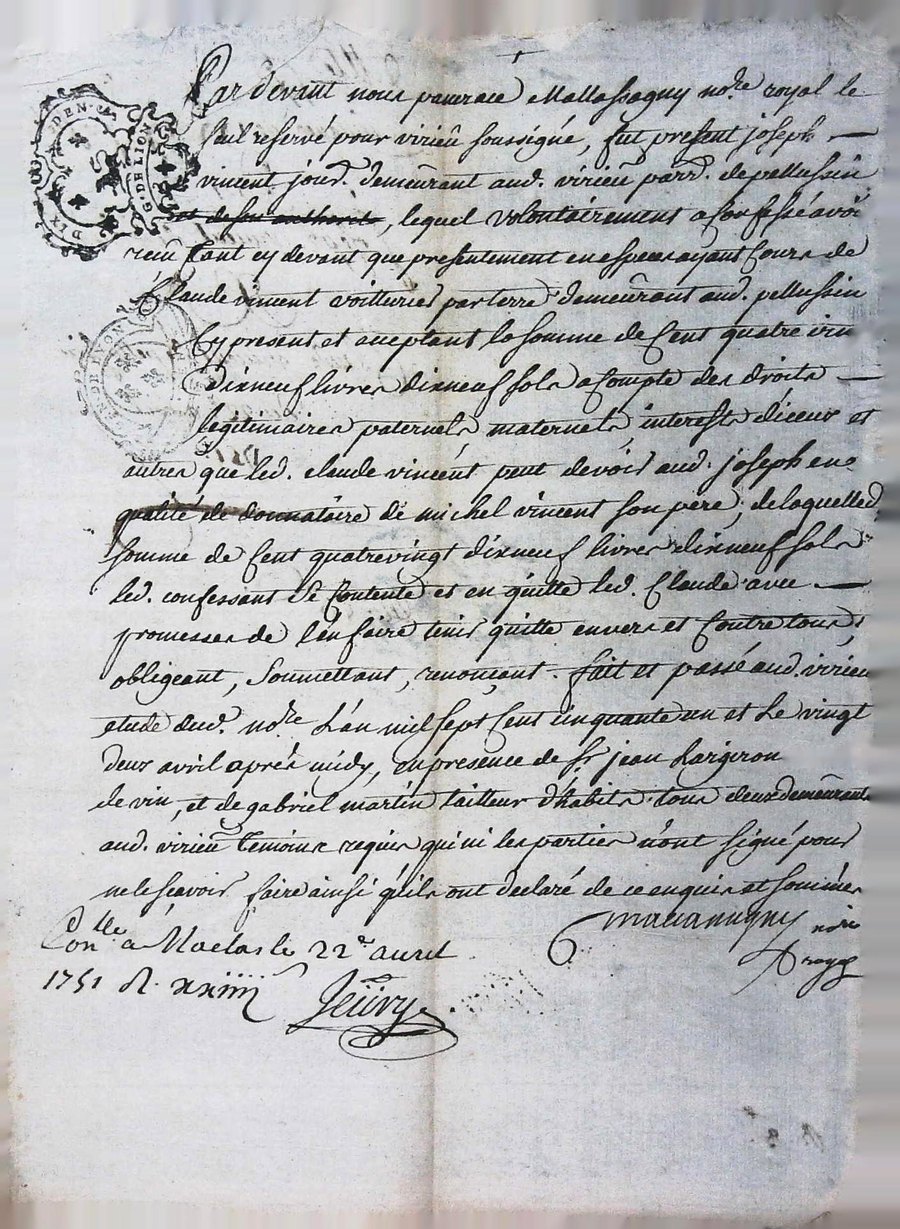 G. DE LION
DIX DEN
Par devant nous pancrace Mallassagny nore. royal le
seul reservé pour virieu soussigné, fut present joseph
vincent jourr. demeûrant aud. virieu parr. de pellussin
et de son authorité, lequel volontairement a confessé avoir
receu tant cy devant que presentement en especes ayant cours de
Claude vincent voitturier par terre demeûrant aud. pellussin
Cy present et acceptant la somme de Cent quatre vin
dixneuf livres dixneuf sols a compte des droits
legitimaires paternels, maternels, interests d'iceux et
autres que led. claude vincent peut devoir aud. joseph en
qualité de donnatoire de michel vincent son pere; de laquelled.
somme de Cent quatrevingt dixneuf livres dixneuf sols
led. confessant se Contente et en quitte led. Claude avec
promesses de l'en faire tenir quitte envers et Contre tous,
obligeant, soumettant, renonçant. fait et passé aud. virieu
etude dud. nore. L'an mil sept Cent cinquante un et le vingt
deux avril après midy, en presence de sr. jean
de vin, et de gabriel martin tailleur d'habits tous deux demeûrant
aud. virieu temoins requis qui ni les parties n'ont signé pour
ne le sçavoir faire ainsi qu'ils ont declaré de ce enquis et sommés
nore
royal
Conlle. a Maclas le 22e. avril
1751 R. xxiiii s